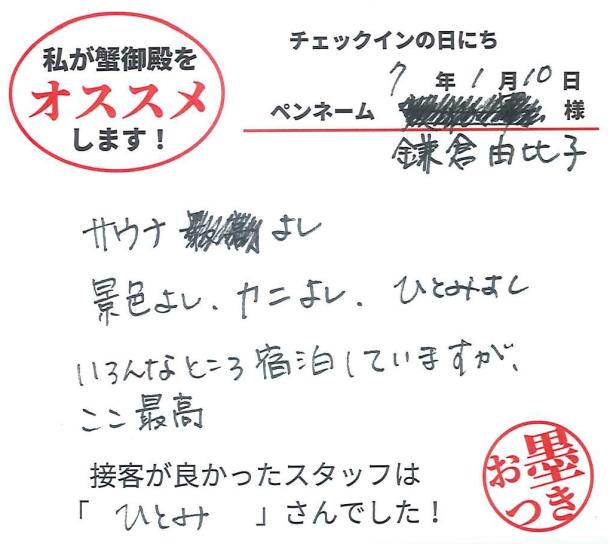 私が蟹御殿を
オススメ
します！
チェックインの日にち
7年1月10日
ペンネーム 様
鎌倉由比子
サウナ よし
景色よし、カニよし、ひとみよし
いろんなところ宿泊していますが、
ここ最高
接客が良かったスタッフは
「ひとみ」さんでした！
お墨つき